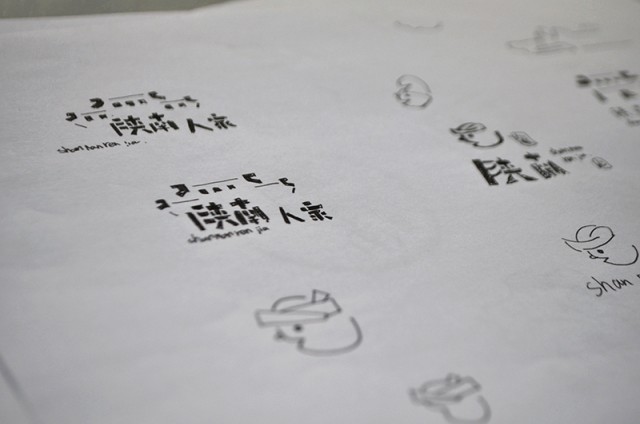 陕南人家
shannanrenjia
陕南人家
shannanrenjia
陕南
shan